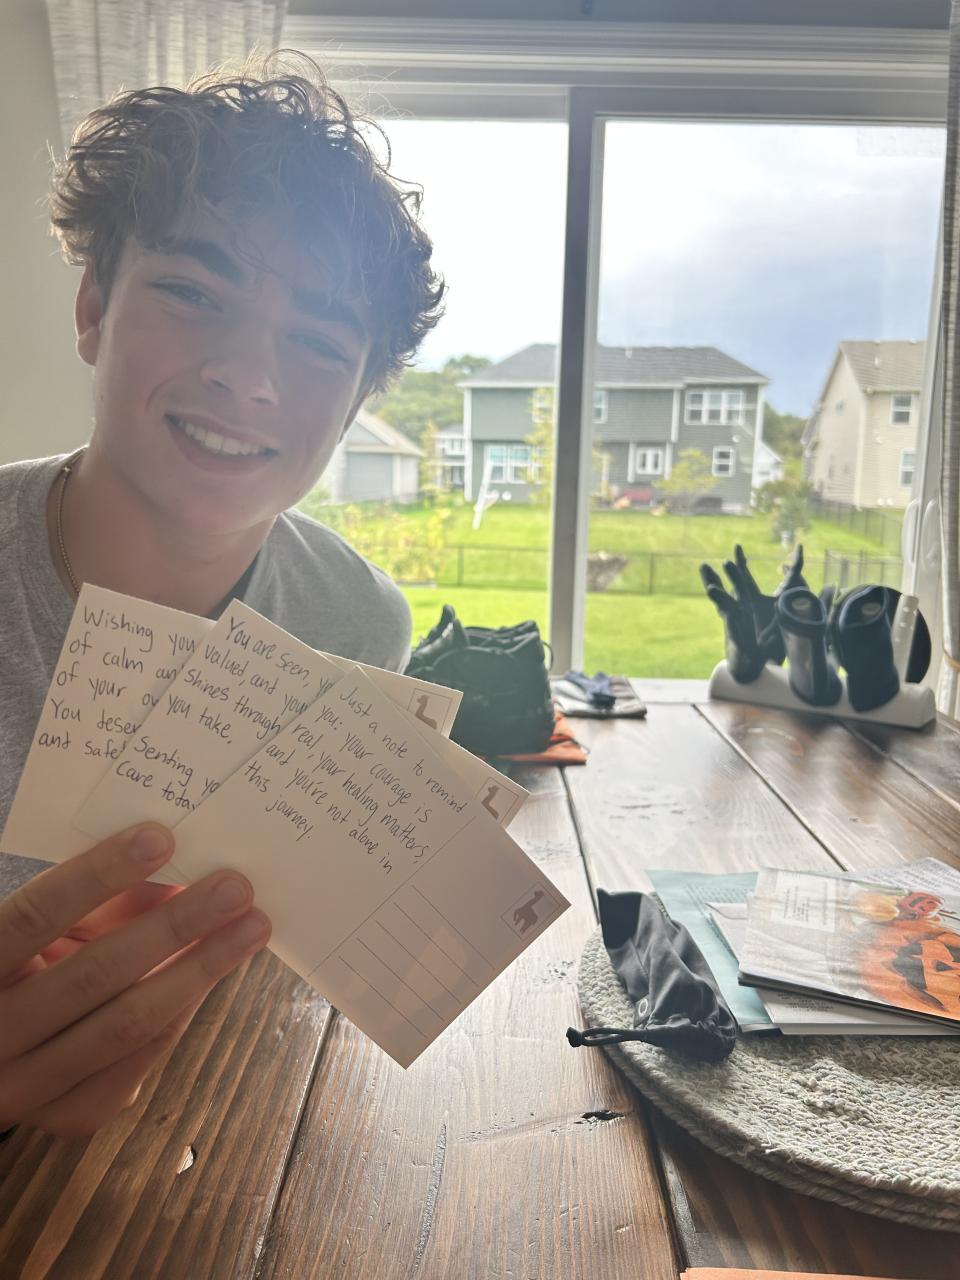 Wishing you
of calm an
of your ow
You deser
and safe
You are seen, yo
valued, and you
shines through
you take.
Sending yo
care today
Just a note to remind
you: your courage is
real, your healing matters,
and you're not alone in
this journey.